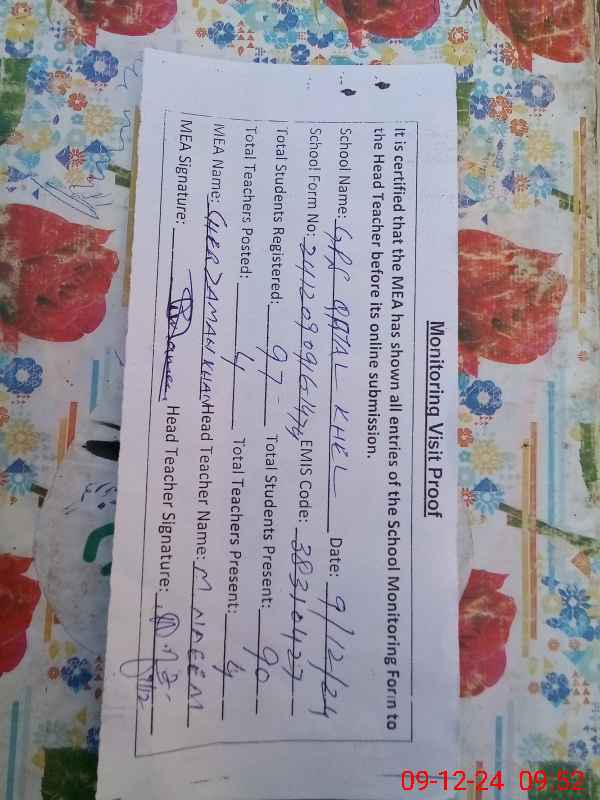 Monitoring Visit Proof
It is certified that the MEA has shown all entries of the School Monitoring Form to
the Head Teacher before its online submission.
School Name: GPS QATAL KHEL Date: 9/12/24
School Form No: EMIS Code: 38310427
Total Students Registered: 97 Total Students Present: 90
Total Teachers Posted: 4 Total Teachers Present: 4
MEA Name: SHER ZAMAN KHAN Head Teacher Name: M NAEEM
MEA Signature: Head Teacher Signature:
09-12-24 09:52